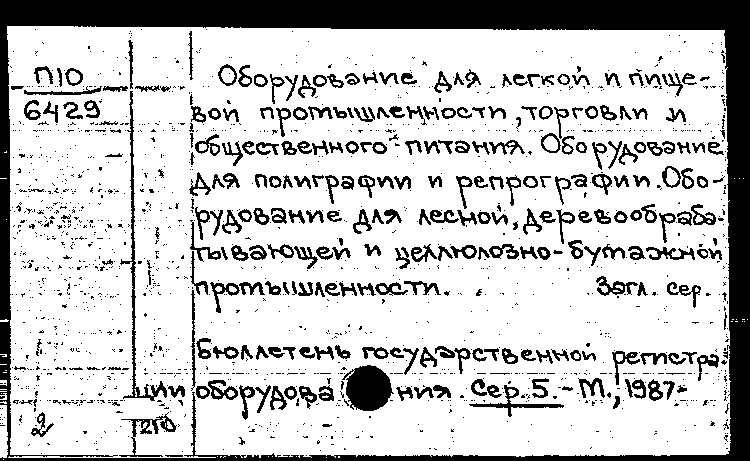 П10
6429
Оборудование для легкой и пище-
вой промышленности, торговли и
общественного питания. Оборудование
для полиграфии и репрографии. Обо-
рудование для лесной, деревообраба-
тывающей и целлюлозно-бумажной
промышленности. Загл. сер.
Бюллетень государственной регистра-
ции оборудова ния. Сер. 5. - М., 1987-
2